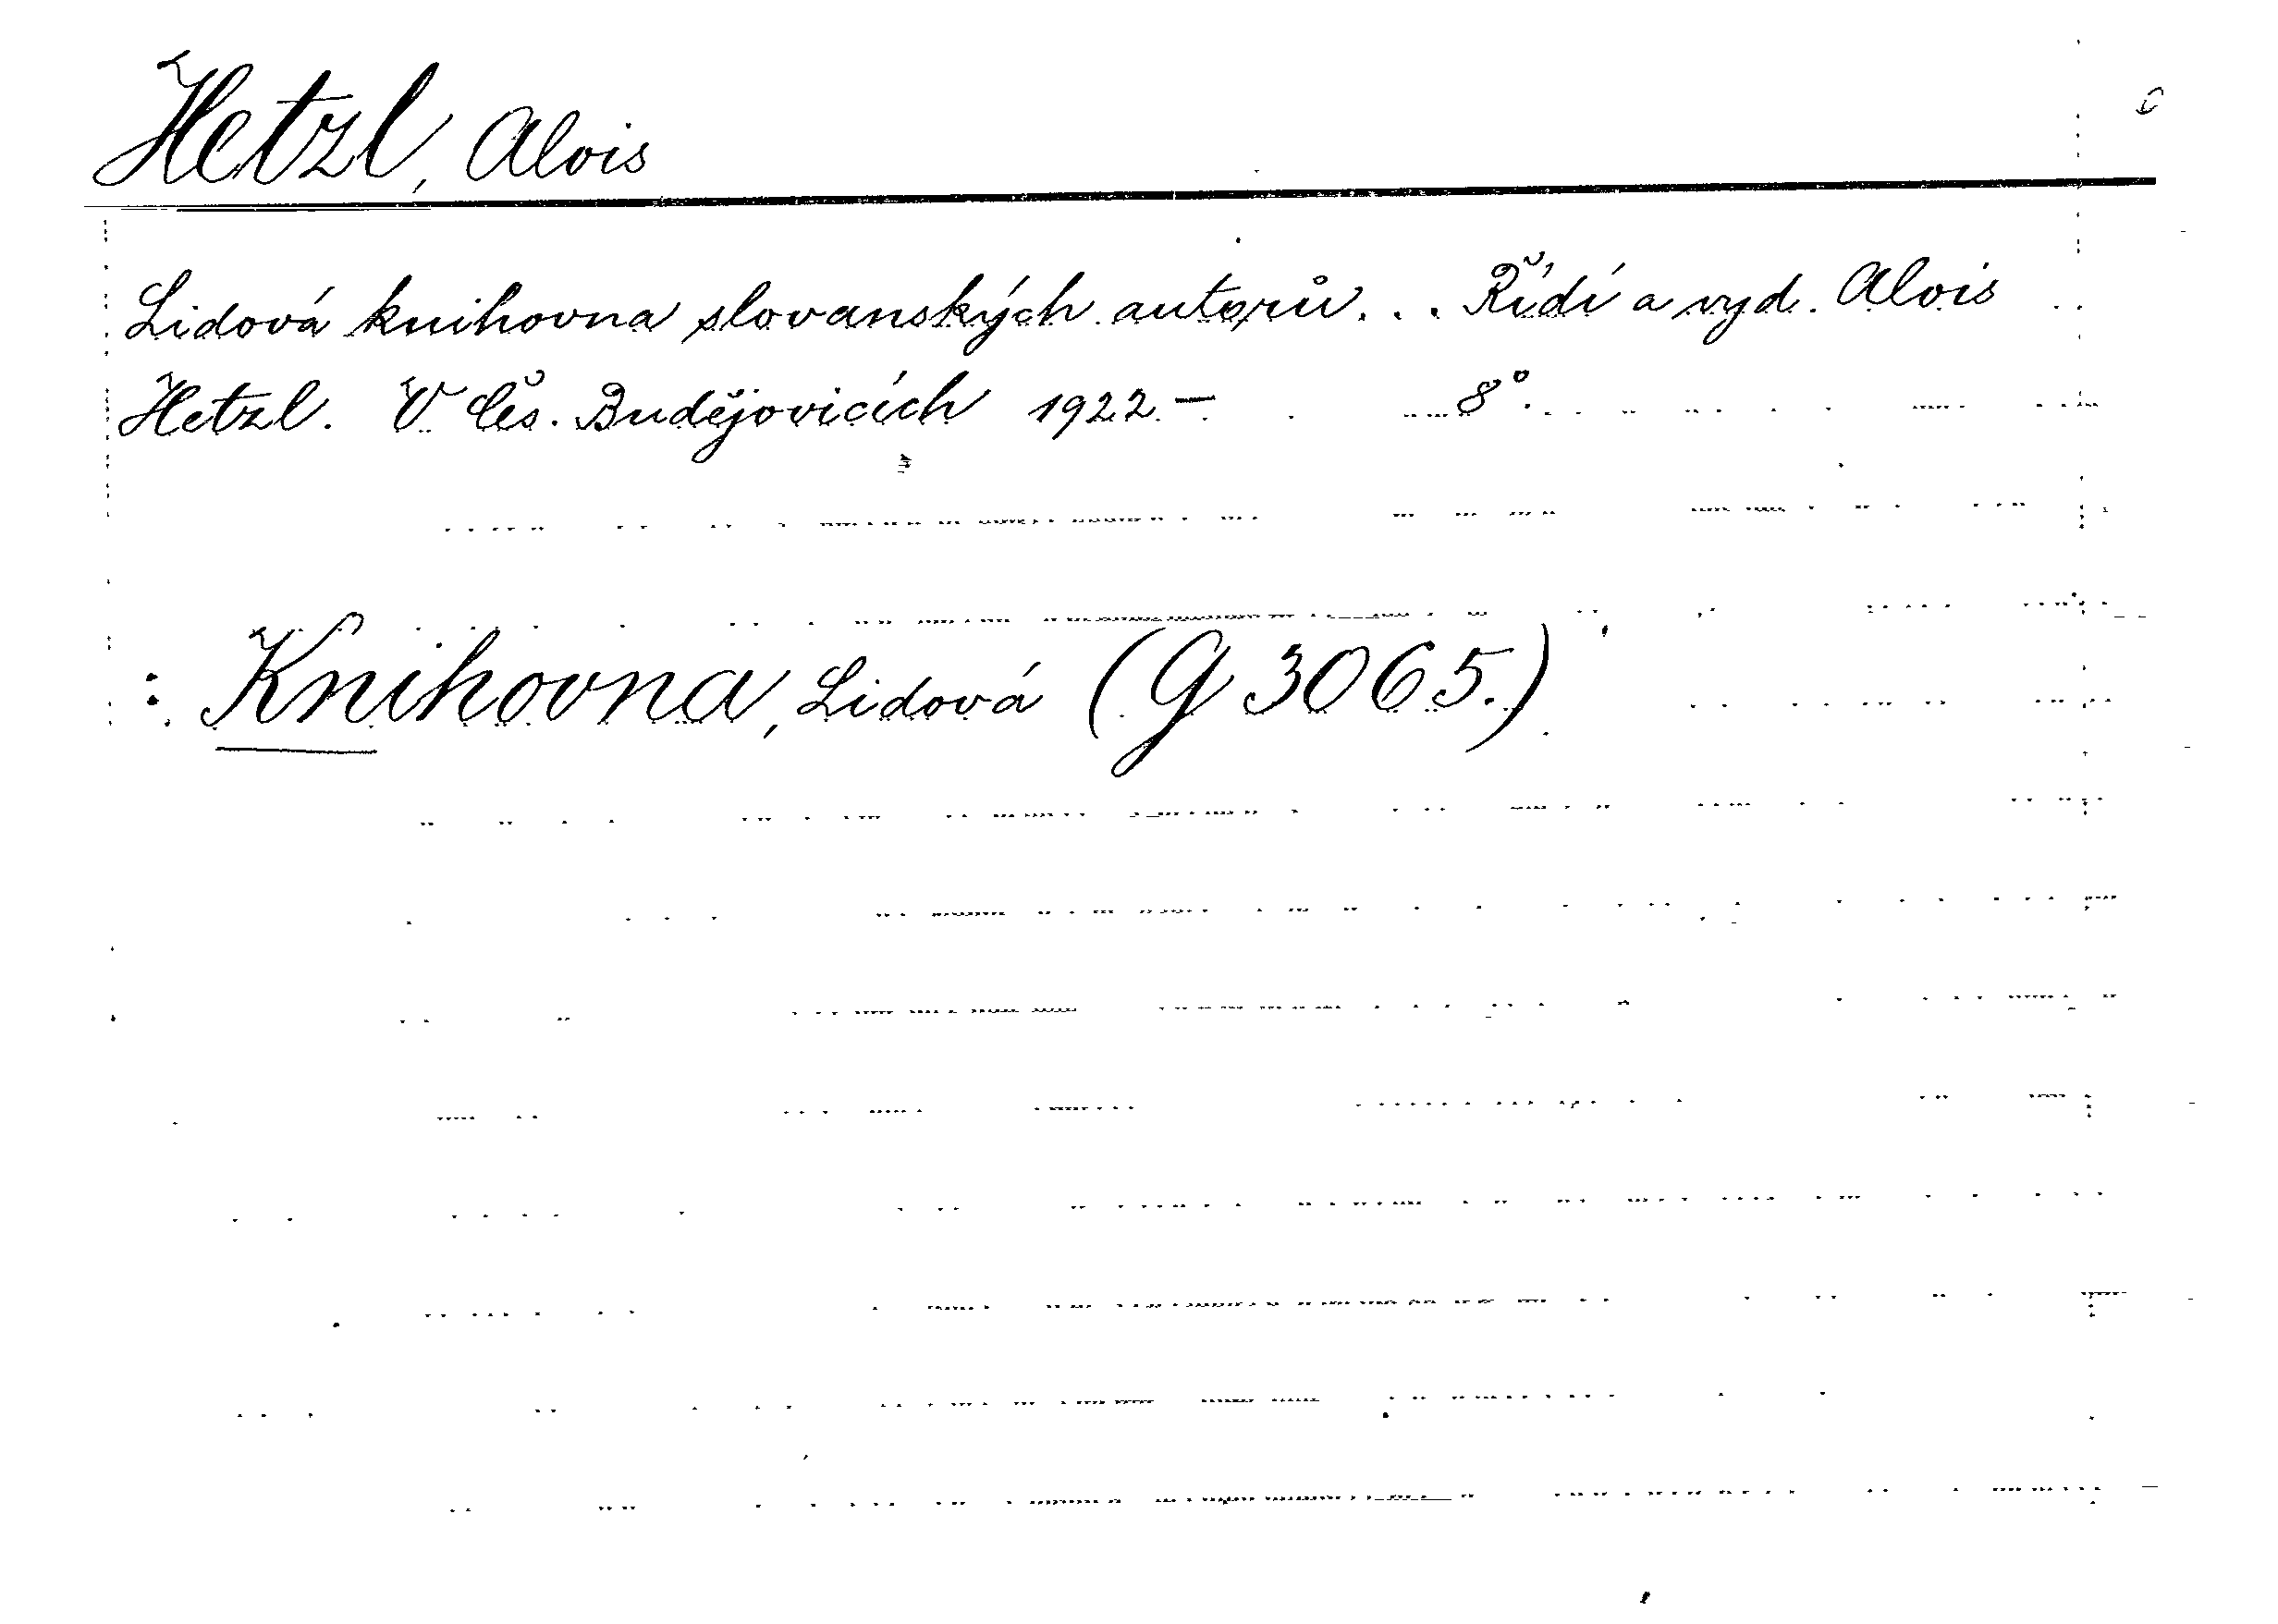 Hetzl, Alois
Lidová knihovna slovanských autorů... Řídí a vyd. Alois
Hetzl. V Čes. Budějovicích 1922.– 8°.
: Knihovna, Lidová (G 3065.)